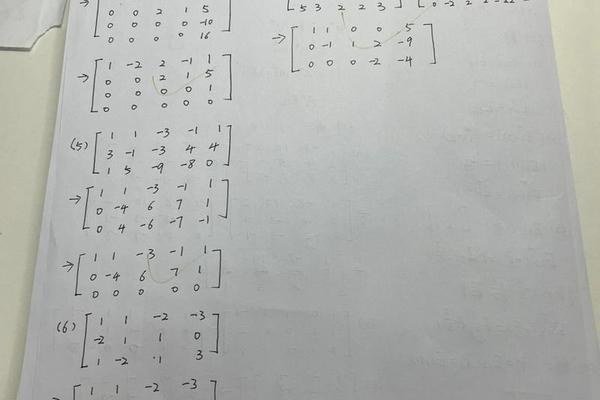 →
0 0 2 1 5
0 0 0 0 -10
0 0 0 0 16
→ 1 -2 2 -1 1
0 0 2 1 5
0 0 0 0 1
0 0 0 0 0
(5) 1 1 -3 -1 1
3 -1 -3 4 4
1 5 -9 -8 0
→ 1 1 -3 -1 1
0 -4 6 7 1
0 4 -6 -7 -1
→ 1 1 -3 -1 1
0 -4 6 7 1
0 0 0 0 0
(6) 1 1 -2 -3
-2 1 1 0
1 -2 1 3
→ 1 1 -2 -3
5 3 2 2 3
→ 1 1 0 0 5
0 -1 1 2 -9
0 0 0 -2 -4